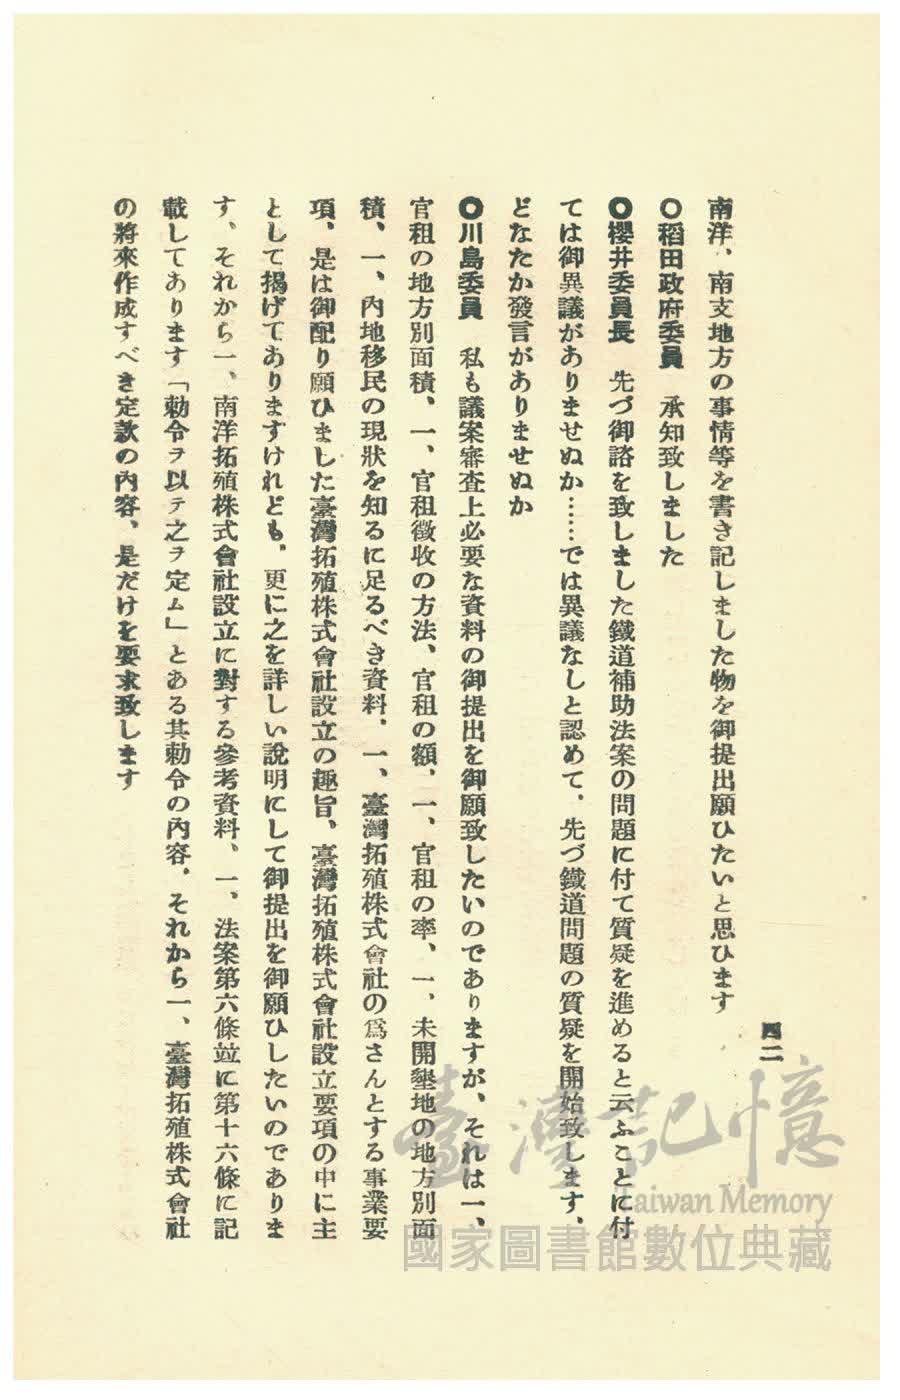 四二
南洋、南支地方の事情等を書き記しました物を御提出願ひたいと思ひます
〇稻田政府委員　承知致しました
〇櫻井委員長　先づ御諮を致しました鐵道補助法案の問題に付て質疑を進めると云ふことに付
ては御異議がありませぬか……では異議なしと認めて、先づ鐵道問題の質疑を開始致します、
どなたか發言がありませぬか
〇川島委員　私も議案審査上必要な資料の御提出を御願致したいのでありますが、それは一、
官租の地方別面積、一、官租徵收の方法、官租の額、一、官租の率、一、未開墾地の地方別面
積、一、內地移民の現狀を知るに足るべき資料、一、臺灣拓殖株式會社の爲さんとする事業要
項、是は御配り願ひました臺灣拓殖株式會社設立の趣旨、臺灣拓殖株式會社設立要項の中に主
として揭げてありますけれども、更に之を詳しい說明にして御提出を御願ひしたいのでありま
す、それから一、南洋拓殖株式會社設立に對する參考資料、一、法案第六條竝に第十六條に記
載してあります「勅令ヲ以テ之ヲ定ム」とある其勅令の內容、それから一、臺灣拓殖株式會社
の將來作成すべき定款の內容、是だけを要求致します
臺灣記憶
Taiwan Memory
國家圖書館數位典藏